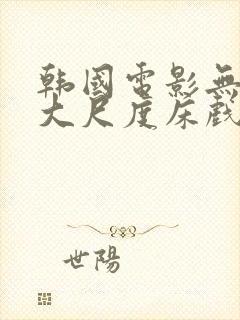 韩國電影無
大尺度床戲
世陽